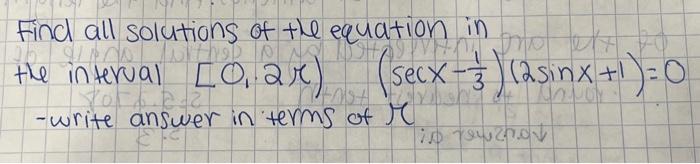 Find all solutions of the equation in
the interval [0, 2π) (sec x - 1/3)(2sin x + 1) = 0
-write answer in terms of π